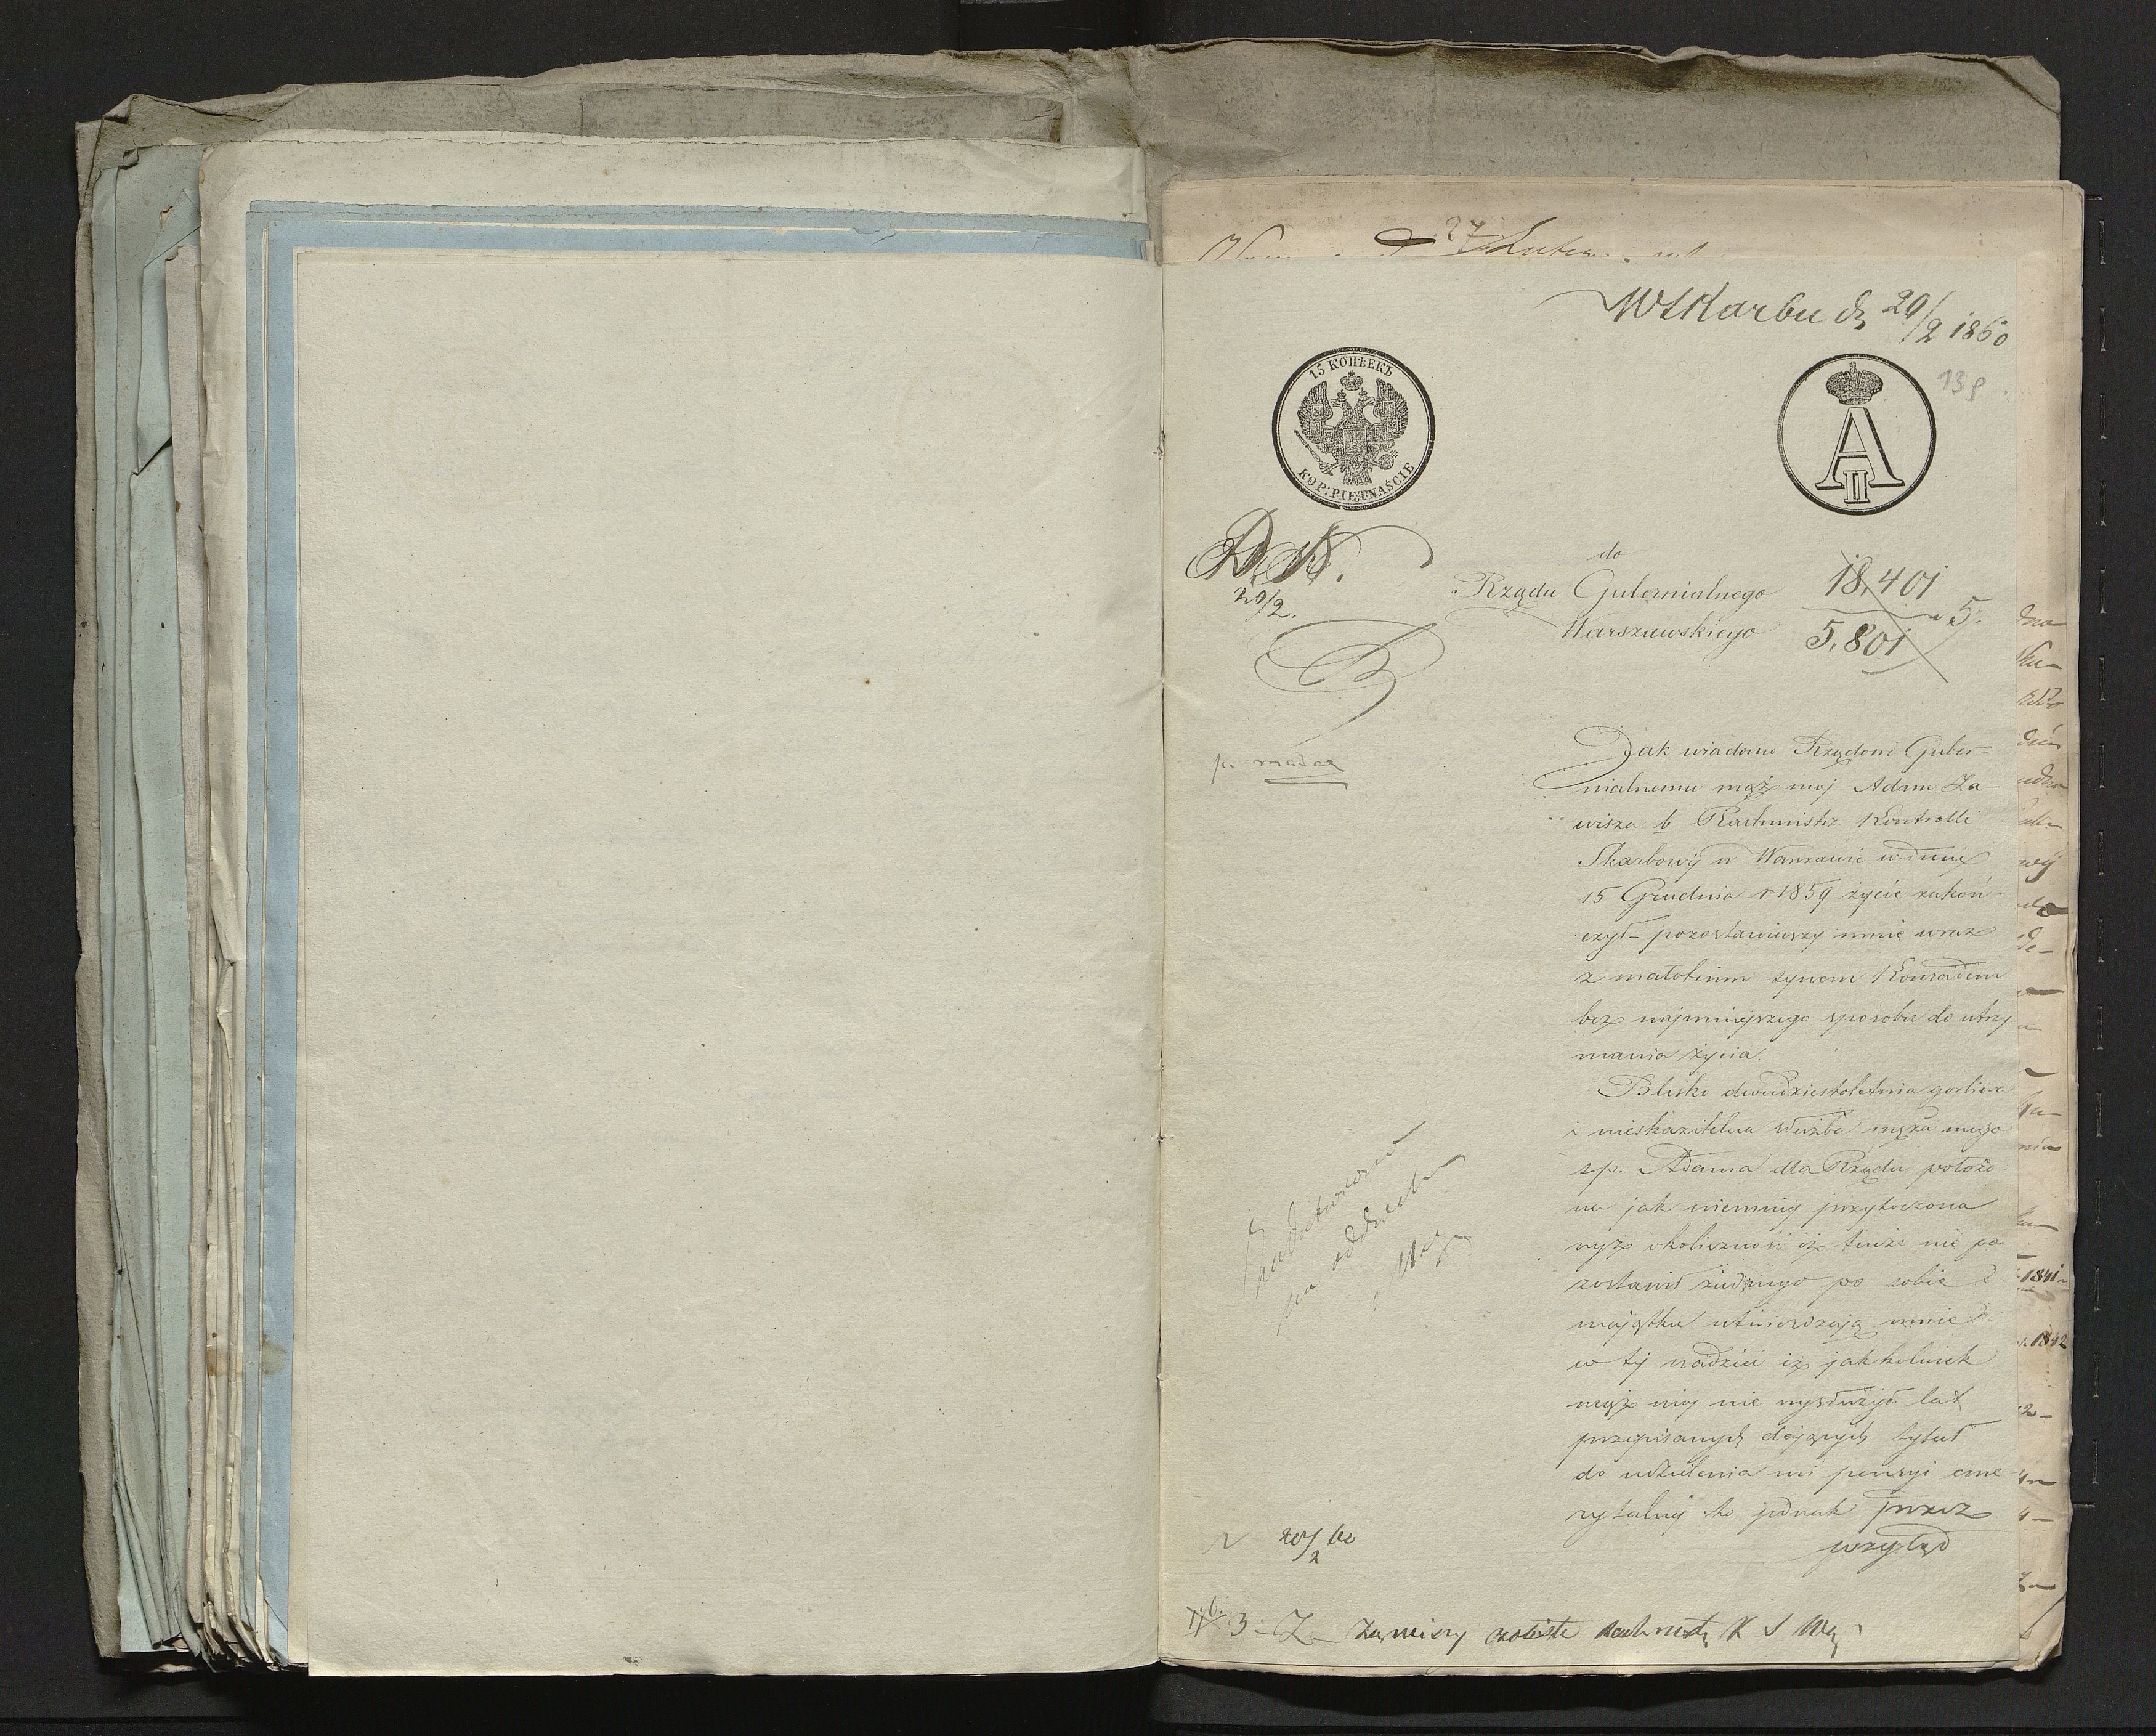 27 Lutego
W Skarbu d. 29/2 1860
139
15 КОПѢЕКЪ
KOP: PIĘTNAŚCIE
A II
20/2.
do
Rządu Gubernialnego
Warszawskiego
18,401
5,801
5.
Jak wiadomo Rządowi Guber-
nialnemu mąż mój Adam Za-
wisza b Rachmistrz Kontrolli
Skarbowéj w Warszawie w dniu
15 Grudnia r 1859 życie zakoń-
czył – pozostawiwszy mnie wraz
z małoletnim synem Konradem
bez najmniejszego sposobu do utrzy-
mania życia.
Blisko dwudziestoletnia gorliwa
i nieskazitelna służba męża mego
sp. Adama dla Rządu położo
na jak niemniéj przytoczona
wyż okoliczność iż tenże nie po-
zostawił żadnego po sobie
majątku utwierdzają mnie
w téj nadziei iż jakkolwiek
mąż mój nie wysłużył lat
przepisanych dających tytuł
do udzielenia mi pensyi eme
rytalnéj to jednak przez
wzgląd
na oddzielu
20/2 60
3 - Z -
1841
1842